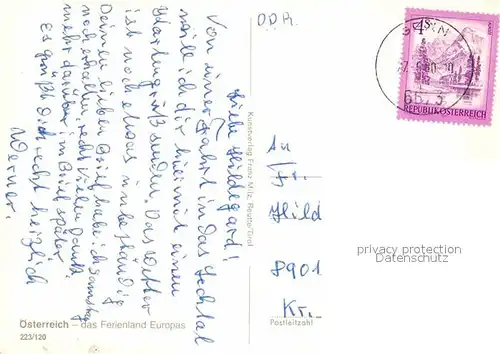 Liebe Hildegard!
Von einer Fahrt in das Lechtal
will ich dir hiermit einen
Kartengruß senden. Das Wetter
ist noch etwas unbeständig
Deinen lieben Brief habe ich Samstag
noch erhalten, recht vielen Dank
mehr darüber im Brief später.
Es grüßt Dich recht herzlich
Werner.
Österreich – das Ferienland Europas
223/120
Kunstverlag Franz Milz, Reutte-Tirol
DDR.
An
Fr.
Hild
8901
Kr.
Postleitzahl
S 4
REPUBLIK ÖSTERREICH
6673
privacy protection
Datenschutz